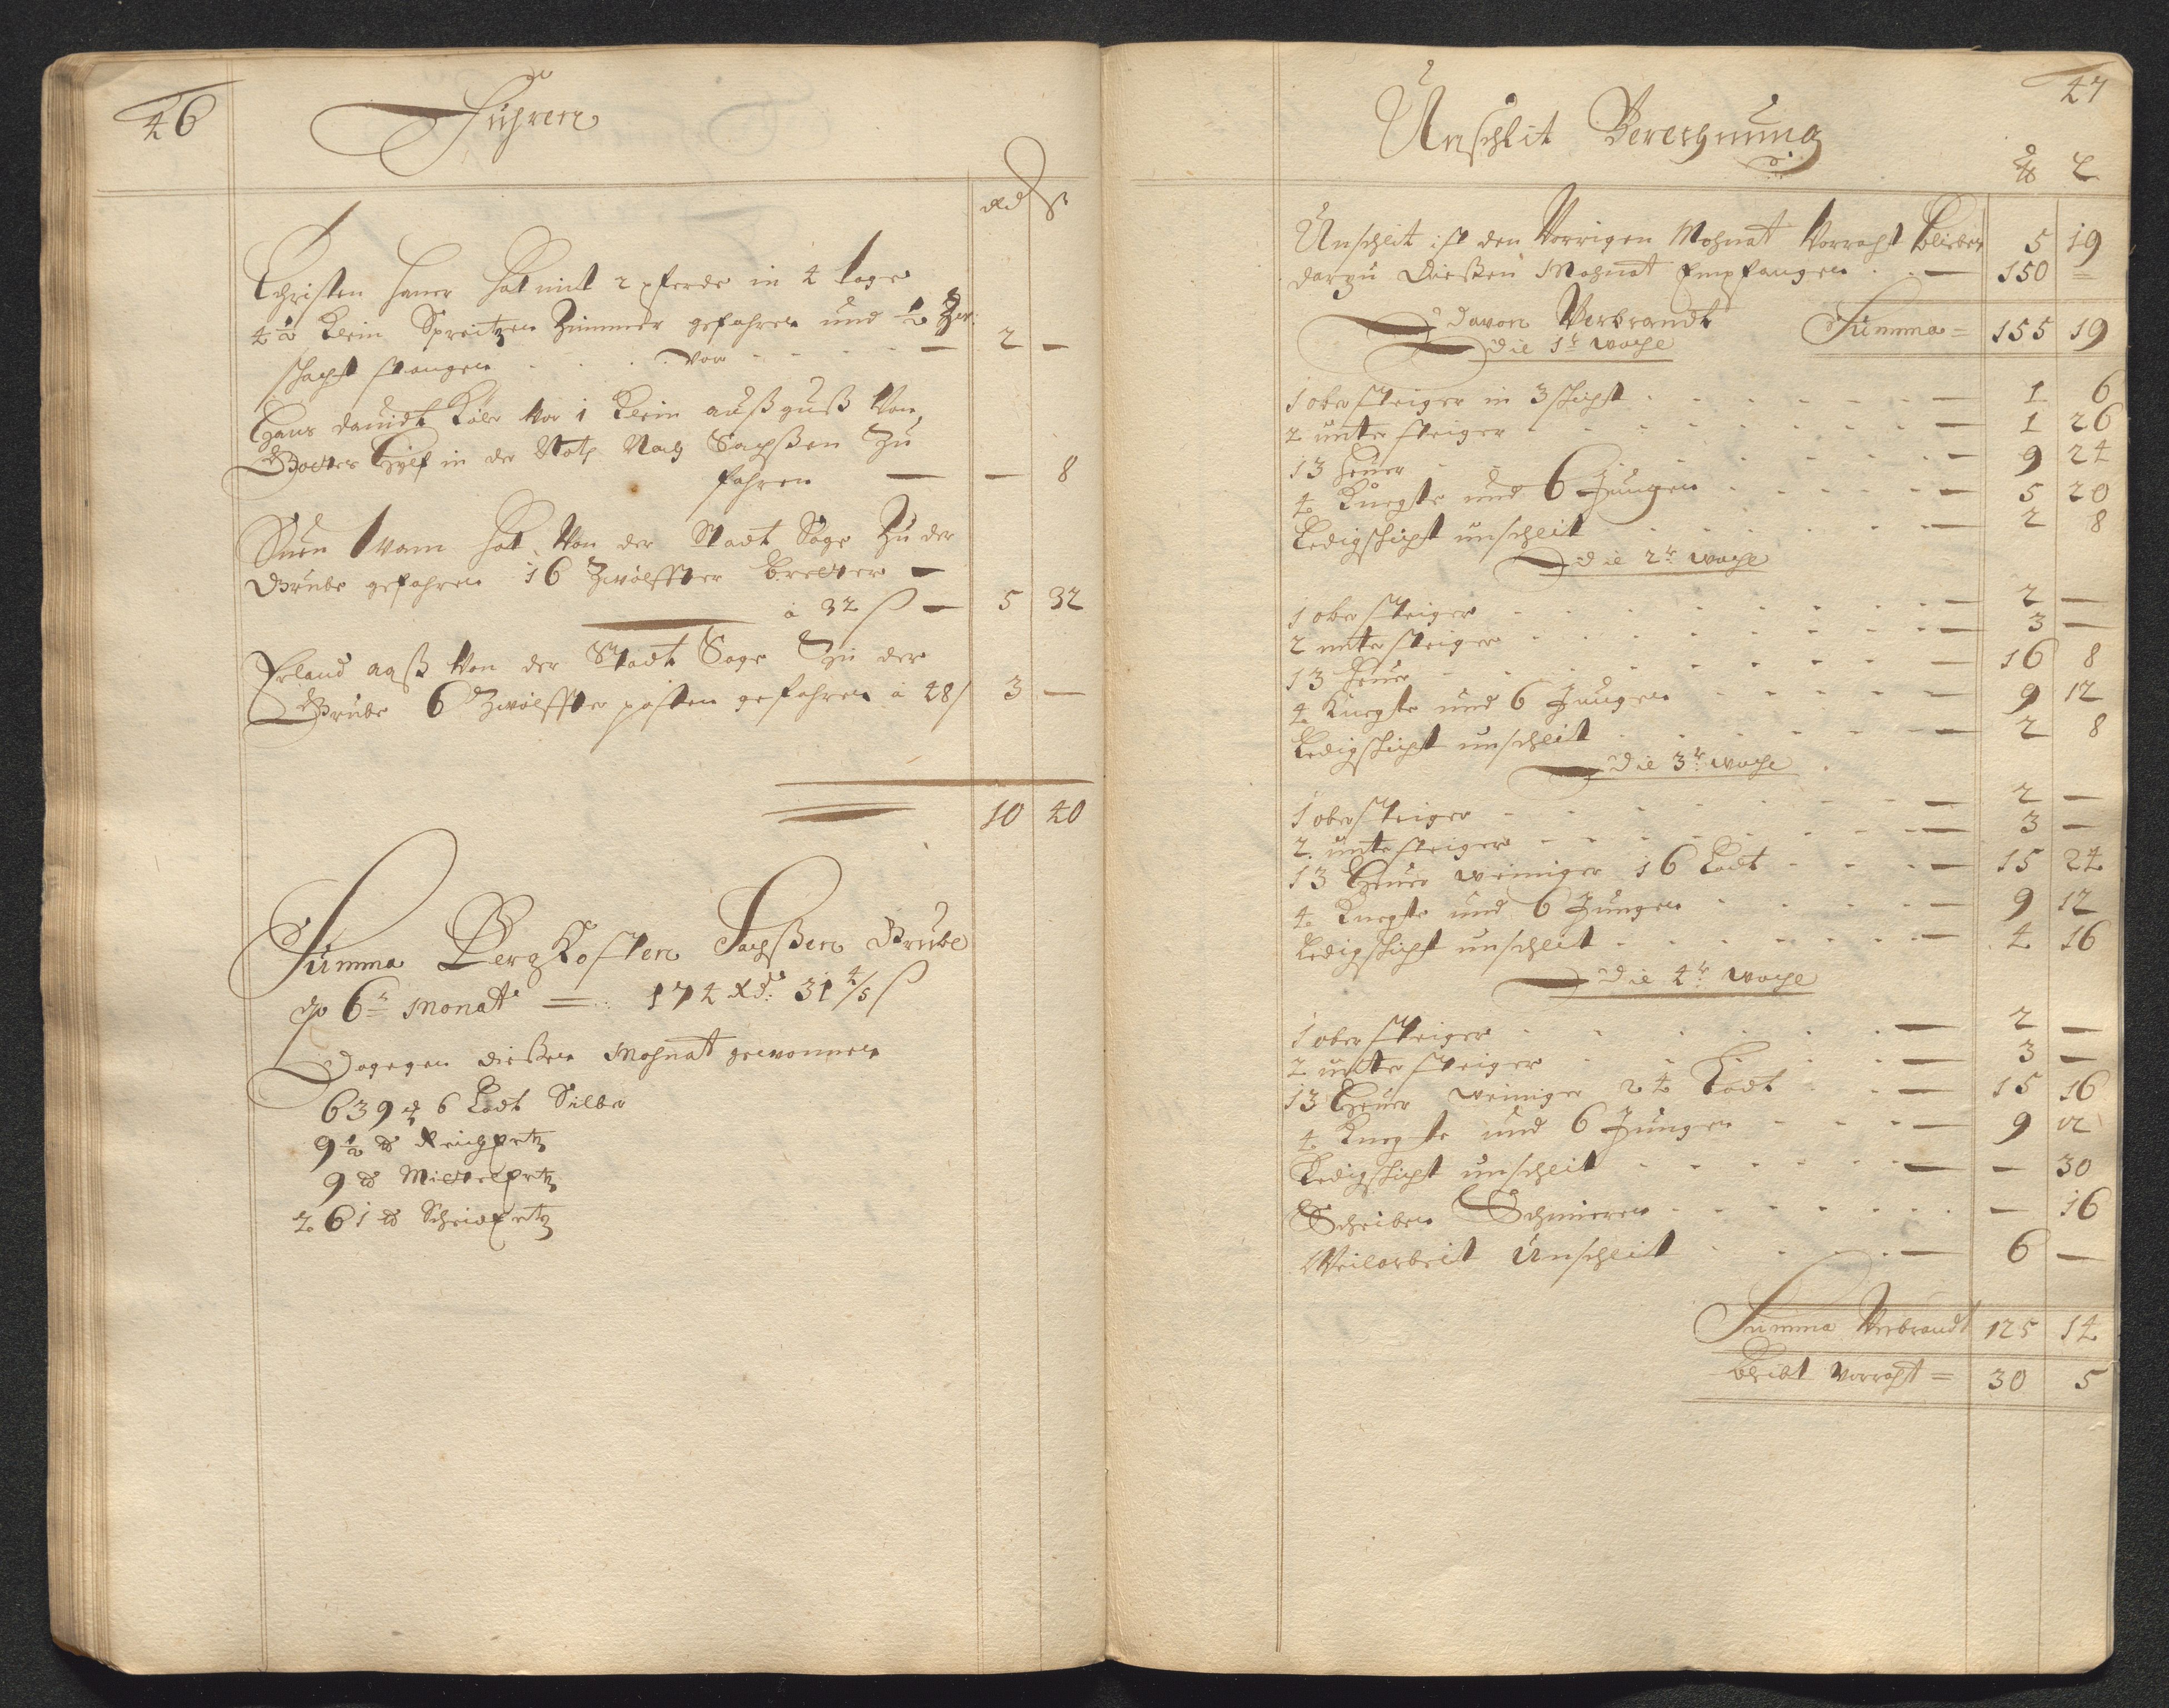 46
Fuhren
Rd ß
Christen Haner hat mit 2 pferde in 4 tage
4½ Klein Spreitzen Zimmer gefahren und ½ Zw:
schacht stangen - - - vor - - - - 2 —
Hanß Dauidt Köler vor 1 Klein außguß Von
Gottes Hylf in der Noth Nach Sachßen Zu
fahren — — 8
Suen Tvam hat Von der Stadt Sage Zu der
Grube gefahren 16 Zwölffter bretter —
à 32 ß — 5 32
Erland aaß Von der Stadt Sage Zu der
Grube 6 Zwölffter posten gefahren à 48ß 3 —
10 40
Summa BergKosten Sachßen Grube
po 6r Monat = 174 Rd: 31 4/5 ß
Dagegen dießen Mohnat gewonnen
639 ℳ 6 Lodt Silber
9½ ℔ Reichertz
9 ℔ Mittelertz
261 ℔ Scheidertz
47
Unschlit Berechnung
℔ L
Unschleit ist den Vorrigen Mohnat Vorraht blieben 5 19
darzu dießen Mohnat Empfangen - - — 150 =
Davon Verbrandt Summa = 155 19
die 1r woche
1 obersteiger in 3 schicht - - - - — 1 6
2 untersteiger - - - - — 1 26
13 heuer - - - - — 9 24
4 Knechte und 6 Jungen - - - - — 5 20
Ledigschicht unschleit - - - - — 2 8
die 2r woche
1 obersteiger - - - - — 2 —
2 untersteiger - - - - — 3 —
13 heuer - - - - — 16 8
4 Knechte und 6 Jungen - - - - — 9 12
Ledigschicht unschleit - - - - — 2 8
die 3r woche
1 obersteiger - - - - — 2 —
2 untersteiger - - - - — 3 —
13 Heuer weiniger 16 Lodt - - - — 15 24
4 Knechte und 6 Jungen - - - - — 9 12
Ledigschicht unschleit - - - - — 4 16
die 4r woche
1 obersteiger - - - - — 2 —
2 untersteiger - - - - — 3 —
13 Heuer weiniger 24 Lodt - - — 15 16
4 Knechte und 6 Jungen - - - — 9 12
Ledigschicht unschleit - - - - — — 30
Scheiben Schmieren - - - - — 16
Weilarbeit Unschleit - - - — 6 —
Summa Verbrandt 125 14
bleibt Vorraht = 30 5